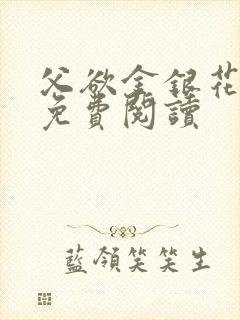 父欲金銀花
免費閱讀
藍領笑笑生